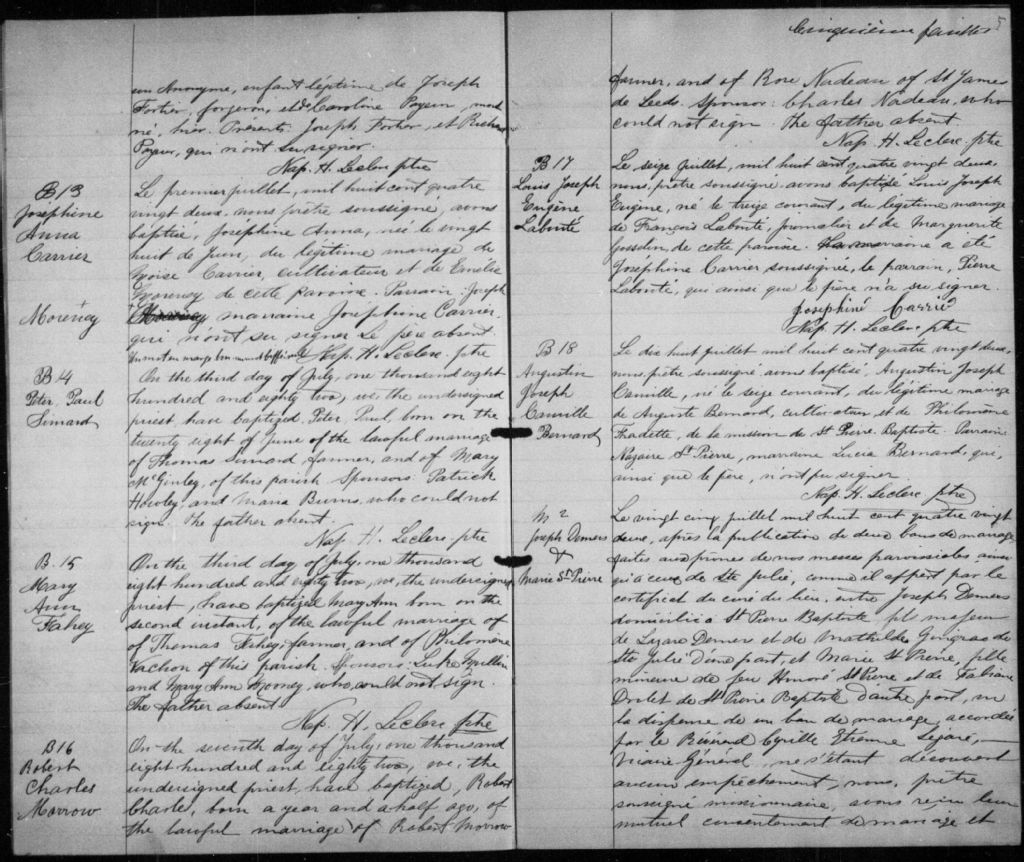 un Anonyme, enfant légitime de Joseph
Fortier, forgeron, et de Caroline Payeur, mort
né, hier. Présents: Joseph Fortier, et Richard
Payeur, qui n'ont su signer.
Nap. H. Leclerc ptre
B 13
Josephine
Anna
Carrier
Morency
Le premier juillet, mil huit cent quatre
vingt deux, nous prêtre soussigné, avons
baptisé, Josephine Anna, née le vingt
huit de Juin, du légitime mariage de
Moise Carrier, cultivateur et de Emélie
Morency de cette paroisse. Parrain Joseph
marraine Joséphine Carrier
qui n'ont su signer. Le père absent.
Un mot en marge bon un mot biffé nul Nap. H. Leclerc ptre
B 14
Peter Paul
Simard
On the third day of July, one thousand eight
hundred and eighty two, we, the undersigned
priest, have baptized Peter Paul, born on the
twenty eight of June of the lawful marriage
of Thomas Simard, farmer, and of Mary
McGinley, of this parish. Sponsors Patrick
Howley, and Maria Burns, who could not
sign. The father absent.
Nap. H. Leclerc ptre
B. 15
Mary
Ann
Fahey
On the third day of July, one thousand
eight hundred and eighty two, we, the undersigned
priest, have baptized Mary Ann born on the
second instant, of the lawful marriage of
of Thomas Fahey, farmer, and of Philomène
Vachon of this parish. Sponsors: Luke Mullin
and Mary Ann Mooney, who could not sign.
The father absent
Nap. H. Leclerc ptre
B16
Robert
Charles
Morrow
On the seventh day of July, one thousand
eight hundred and eighty two, we, the
undersigned priest, have baptized, Robert
Charles, born a year and a half ago, of
the lawful marriage of Robert Morrow
Cinquième feuillet 5
farmer, and of Rose Nadeau of St James
de Leeds. Sponsor: Charles Nadeau, who
could not sign. The father absent
Nap. H. Leclerc ptre
B 17
Louis Joseph
Eugène
Labonté
Le seize juillet, mil huit cent quatre vingt deux
nous, prêtre soussigné avons baptisé Louis Joseph
Eugène, né le treize courant, du légitime mariage
de François Labonté, journalier et de Marguerite
Gosselin, de cette paroisse. La marraine a été
Joséphine Carrier soussignée, le parrain, Pierre
Labonté, qui ainsi que le père n'a su signer.
Josephine Carrier
Nap. H. Leclerc ptre
B 18
Augustin
Joseph
Camille
Bernard
Le dix huit juillet mil huit cent quatre vingt deux,
nous, prêtre soussigné avons baptisé, Augustin Joseph
Camille, né le seize courant, du légitime mariage
de Auguste Bernard, cultivateur et de Philomène
Fradette, de la mission de St Pierre Baptiste. Parrain
Nazaire St Pierre, marraine Lucia Bernard, qui,
ainsi que le père, n'ont pu signer.
Nap. H. Leclerc ptre
M 2
Joseph Demers
&
Marie St Pierre
Le vingt cinq juillet mil huit cent quatre vingt
deux, après la publication de deux bans de mariage
faites aux prônes de nos messes paroissiales, ainsi
qu'à ceux de Ste Julie, comme il appert par le
certificat du curé du lieu, entre Joseph Demers
domicilié à St Pierre Baptiste fils majeur
de Lazare Demers et de Mathilde Gingras de
Ste Julie d'une part, et Marie St Pierre, fille
mineure de feu Honoré St Pierre et de Fabiane
Drolet de St Pierre Baptiste d'autre part, vu
la dispense de un ban de mariage, accordée
par le Révérend Cyrille Etienne Legaré,
Vicaire Général, ne s'étant découvert
aucun empêchement, nous, prêtre
soussigné missionnaire, avons reçu leur
mutuel consentement de mariage et